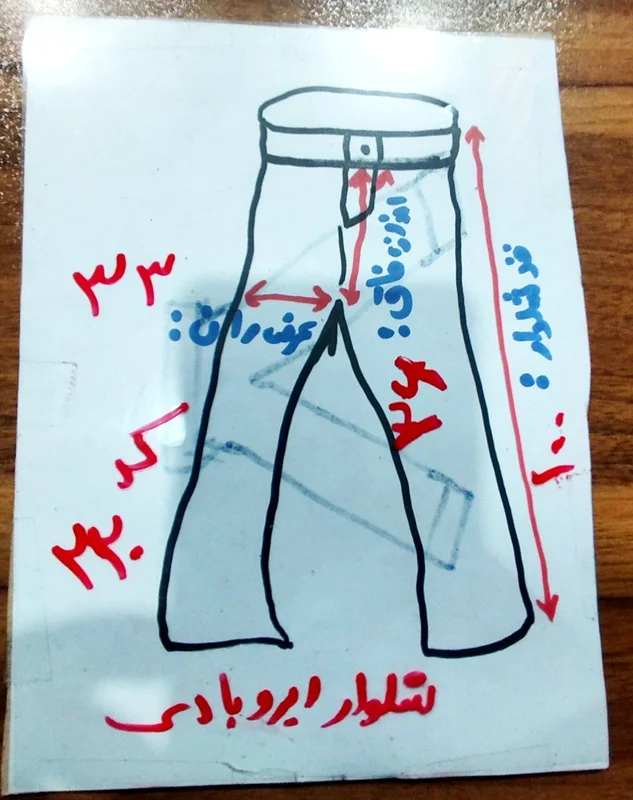 قد شلوار :
۱۰۰
اندازه فاق :
۳۶
عرض ران :
۳۳
کد
شلوار ایروبادی